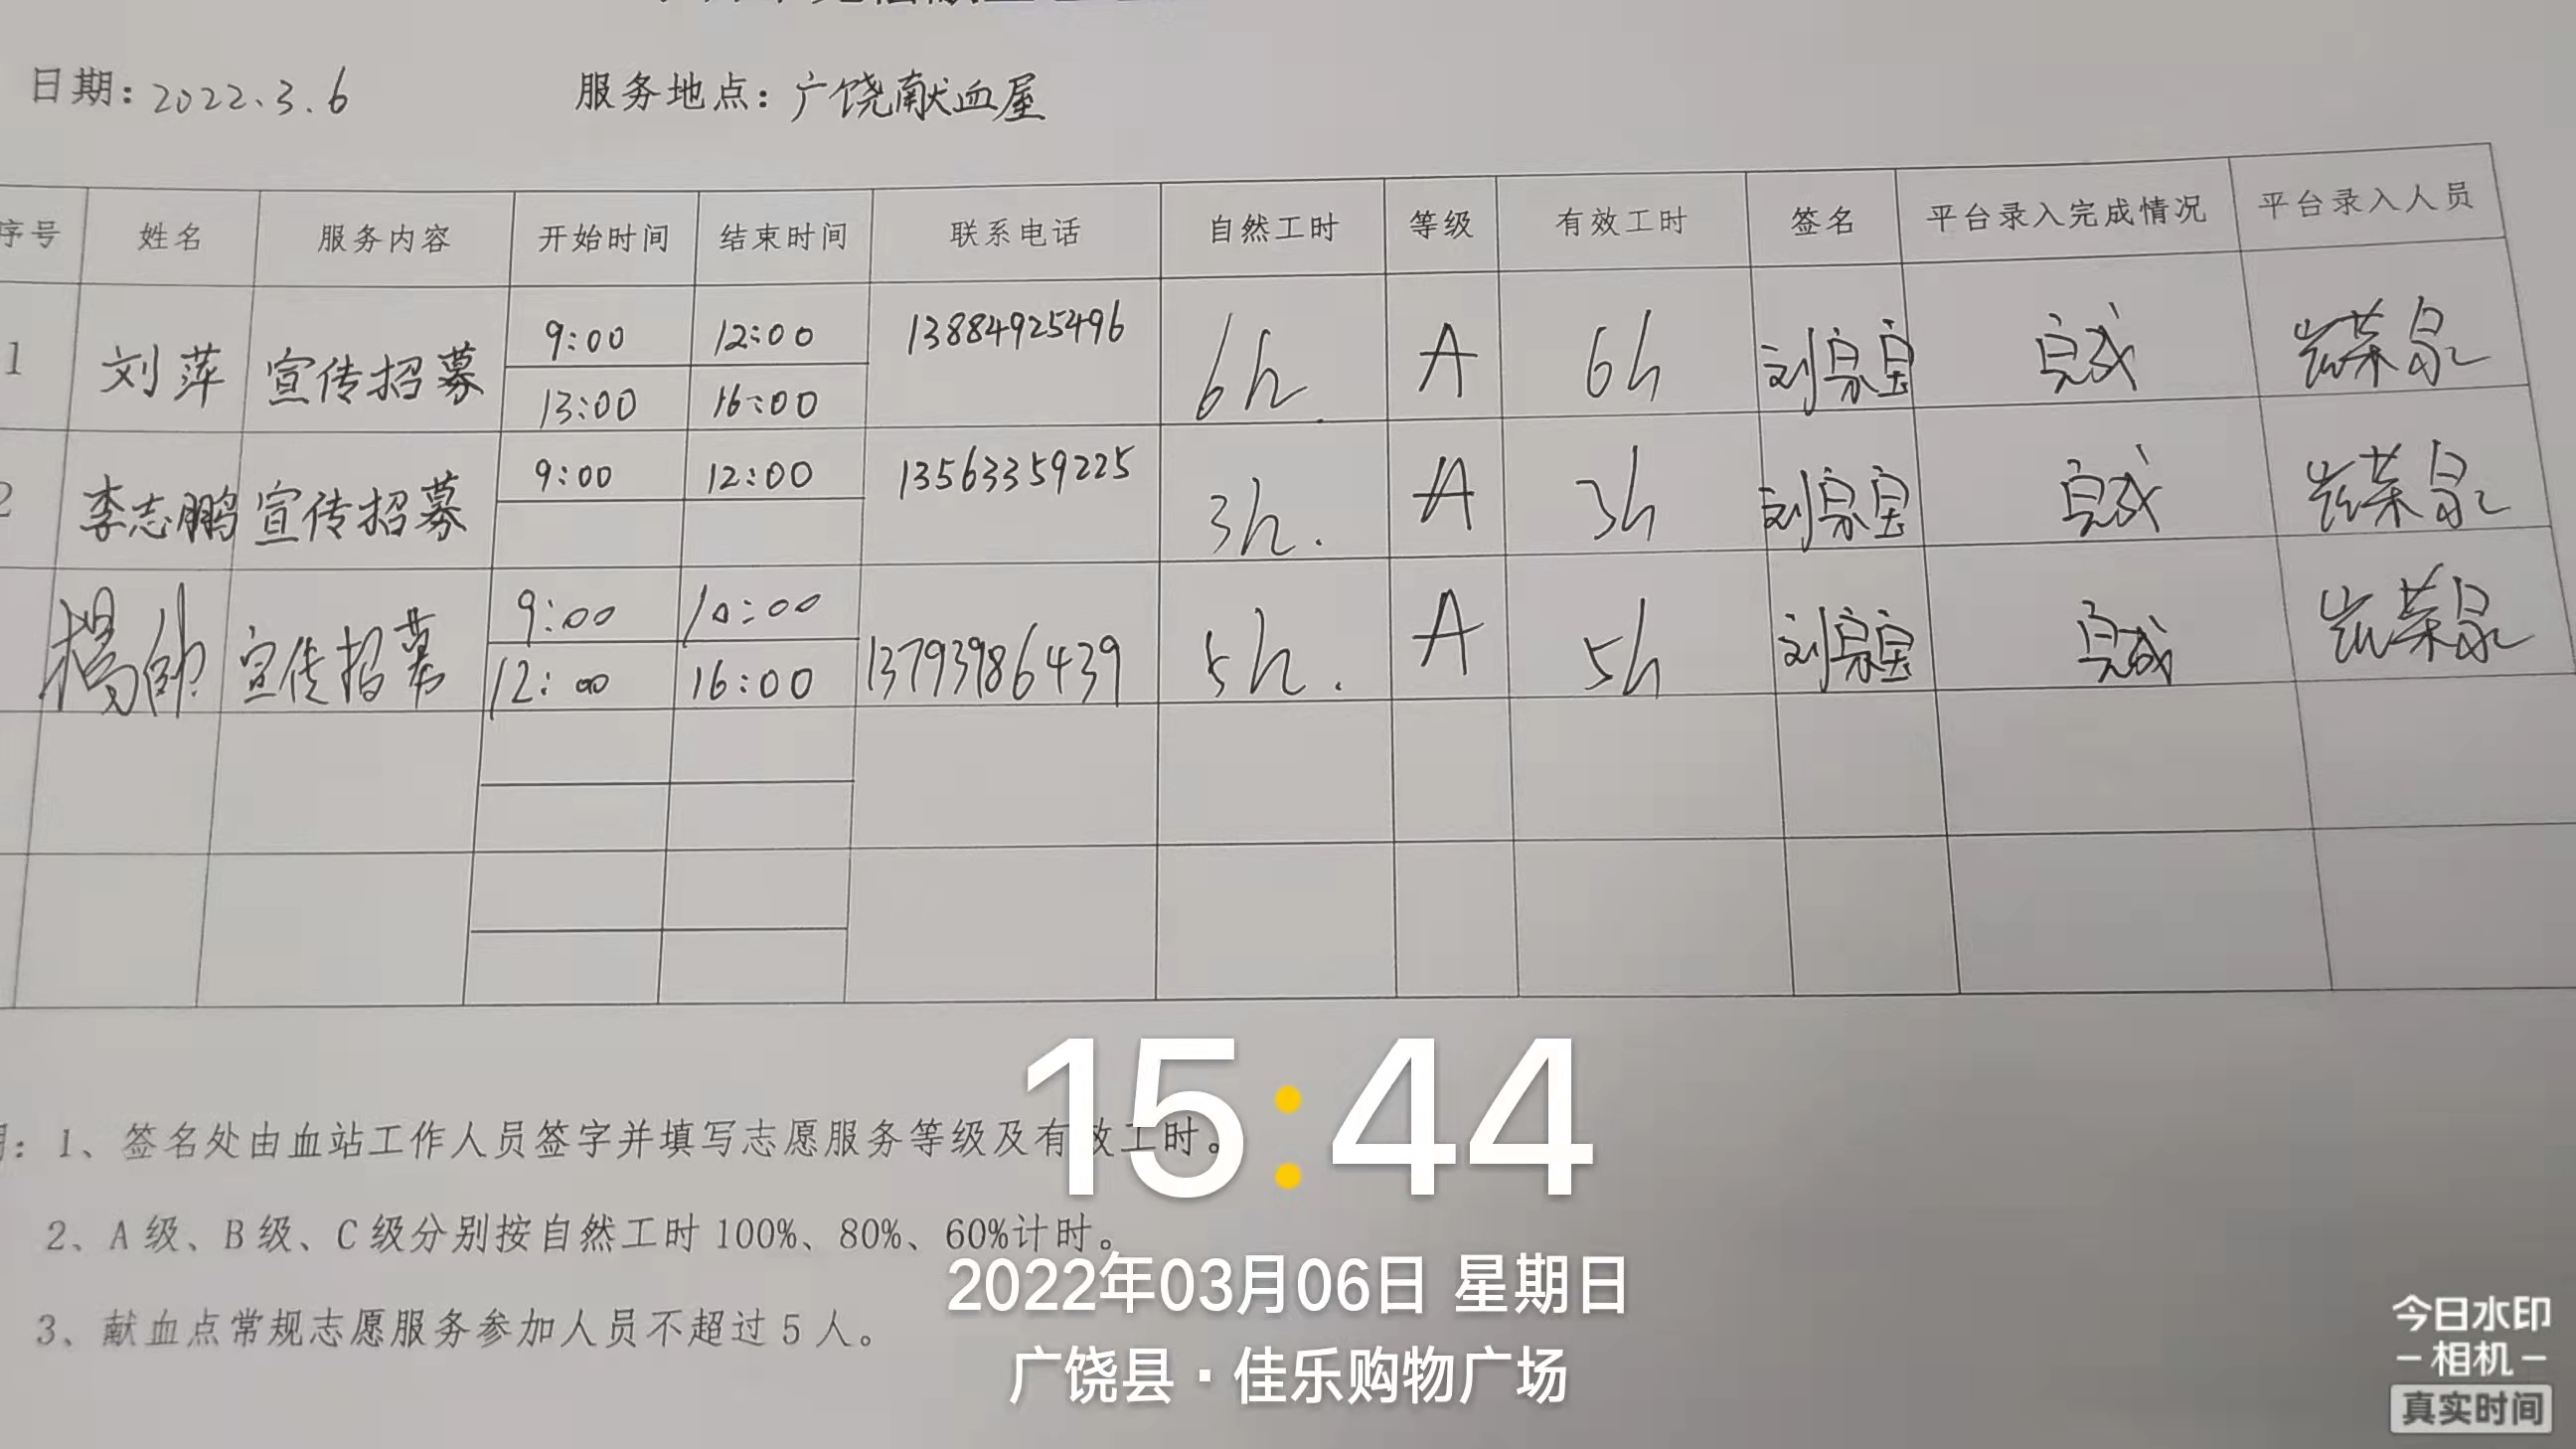 日期：2022.3.6 服务地点：广饶献血屋
序号 姓名 服务内容 开始时间 结束时间 联系电话 自然工时 等级 有效工时 签名 平台录入完成情况 平台录入人员
1 刘萍 宣传招募 9:00 12:00 13884925496 6h. A 6h 刘 完成
13:00 16:00
2 李志鹏 宣传招募 9:00 12:00 13563359225 3h. A 3h 刘 完成
杨帅 宣传招募 9:00 10:00 13793986439 5h. A 5h 刘 完成
12:00 16:00
1、签名处由血站工作人员签字并填写志愿服务等级及有效工时。
2、A级、B级、C级分别按自然工时100%、80%、60%计时。
3、献血点常规志愿服务参加人员不超过5人。
15:44
2022年03月06日 星期日
广饶县·佳乐购物广场
今日水印
-相机-
真实时间